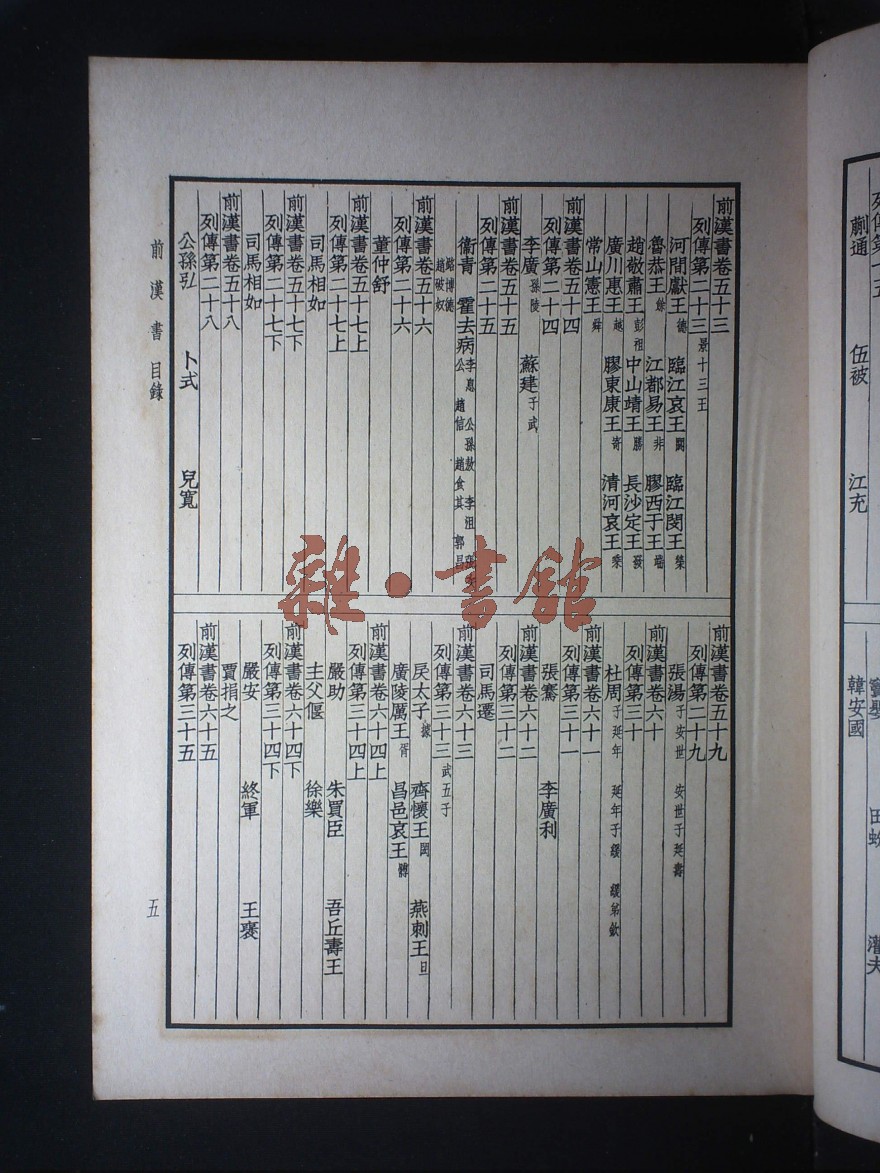 前漢書卷五十三
列傳第二十三 景十三王
河間獻王德 臨江哀王閼 臨江閔王榮
魯恭王餘 江都易王非 膠西于王端
趙敬肅王彭祖 中山靖王勝 長沙定王發
廣川惠王越 膠東康王寄 清河哀王乘
常山憲王舜
前漢書卷五十四
列傳第二十四
李廣孫陵 蘇建子武
前漢書卷五十五
列傳第二十五
衞青 霍去病 李息 公孫敖 李沮 張次公 趙信 趙食其 郭昌
路博德 趙破奴
前漢書卷五十六
列傳第二十六
董仲舒
前漢書卷五十七上
列傳第二十七上
司馬相如
前漢書卷五十七下
列傳第二十七下
司馬相如
前漢書卷五十八
列傳第二十八
公孫弘 卜式 兒寬
前漢書卷五十九
列傳第二十九
張湯 子安世 安世子延壽
前漢書卷六十
列傳第三十
杜周 子延年 延年子緩 緩弟欽
前漢書卷六十一
列傳第三十一
張騫 李廣利
前漢書卷六十二
列傳第三十二
司馬遷
前漢書卷六十三
列傳第三十三 武五子
戾太子據 齊懷王閎 燕剌王旦
廣陵厲王胥 昌邑哀王髆
前漢書卷六十四上
列傳第三十四上
嚴助 朱買臣 吾丘壽王
主父偃 徐樂
前漢書卷六十四下
列傳第三十四下
嚴安 終軍 王襃
賈捐之
前漢書卷六十五
列傳第三十五
前漢書 目錄
五
雜·書館
蒯通 伍被 江充
田蚡 灌夫
韓安國